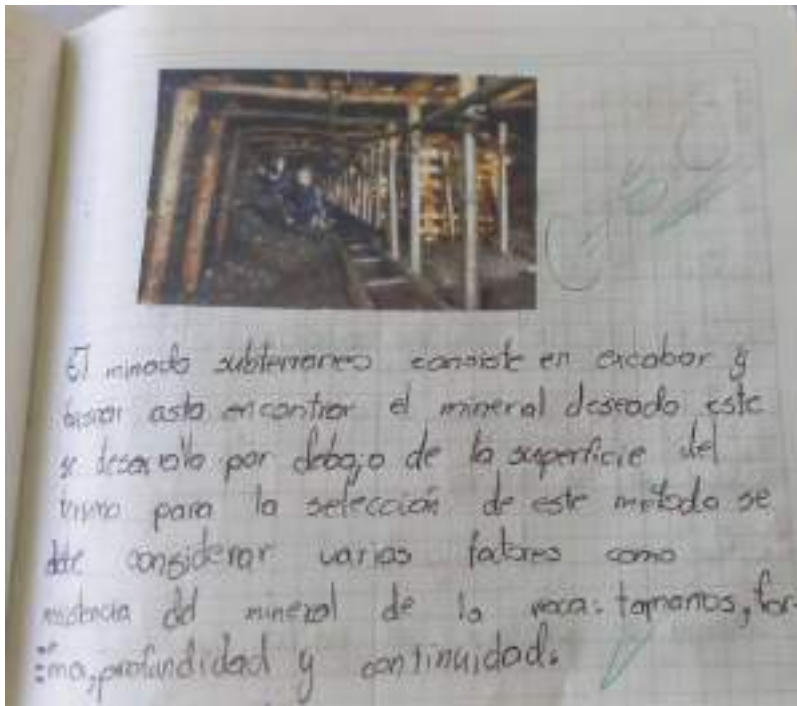 El minado subterraneo consiste en excabar y
buscar asta encontrar el mineral deseado este
se desarrolla por debajo de la superficie del
para la selección de este método se
debe considerar varios fatores como
resistencia del mineral de la roca: tamanos, for-
ma, profundidad y continuidad.